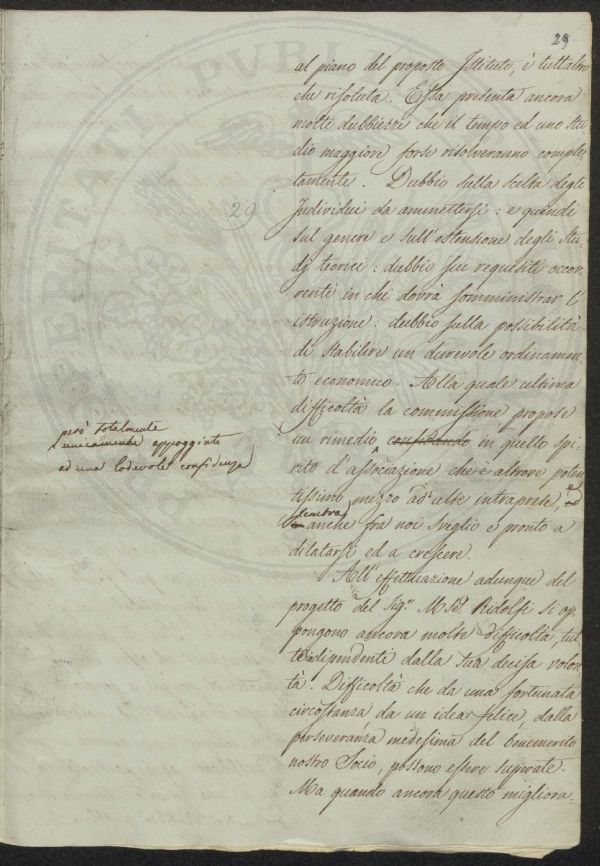 29
al piano del proposto Istituto, è tuttaltro
che risoluta. Essa presenta ancora
molte dubbiezze che il tempo ed uno stu-
dio maggiore forse risolveranno comple-
tamente. Dubbio sulla scelta degli
Individui da ammettersi: e quindi
sul genere e sull'estensione degli stu-
dj teorici: dubbio sui requisiti occor-
renti in chi dovrà somministrar l'
istruzione: dubbio sulla possibilità
di stabilire un durevole ordinamen-
to economico. Alla quale ultima
difficoltà la commissione propose
un rimedio confidando in quello spi-
rito d'associazione che e altrove poten-
tissimo mezzo ad alte intraprese, e
sembra anche fra noi sveglio e pronto a
dilatarsi ed a crescere.
però totalmente
unicamente appoggiato
ad una lodevole confidenza
All'effettuazione adunque del
progetto del Sigr. Mse. Ridolfi si op-
pongono ancora molte difficoltà, tut-
te indipendenti dalla sua decisa volon-
tà. Difficoltà che da una fortunata
circostanza da un idea felice, dalla
perseveranza medesima del benemerito
nostro Socio, possono essere superate.
Ma quando ancora questo migliora-
29
PVBLI